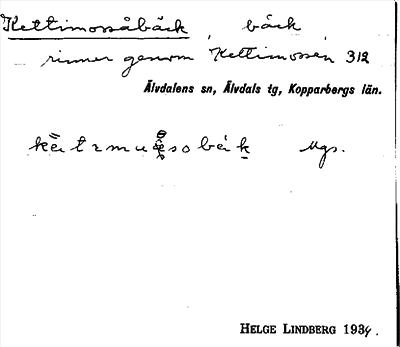 Kettimossåbäck, bäck,
rinner genom Kettimossen, 312
Älvdalens sn, Älvdals tg, Kopparbergs län.
Ugs.
HELGE LINDBERG 1934.